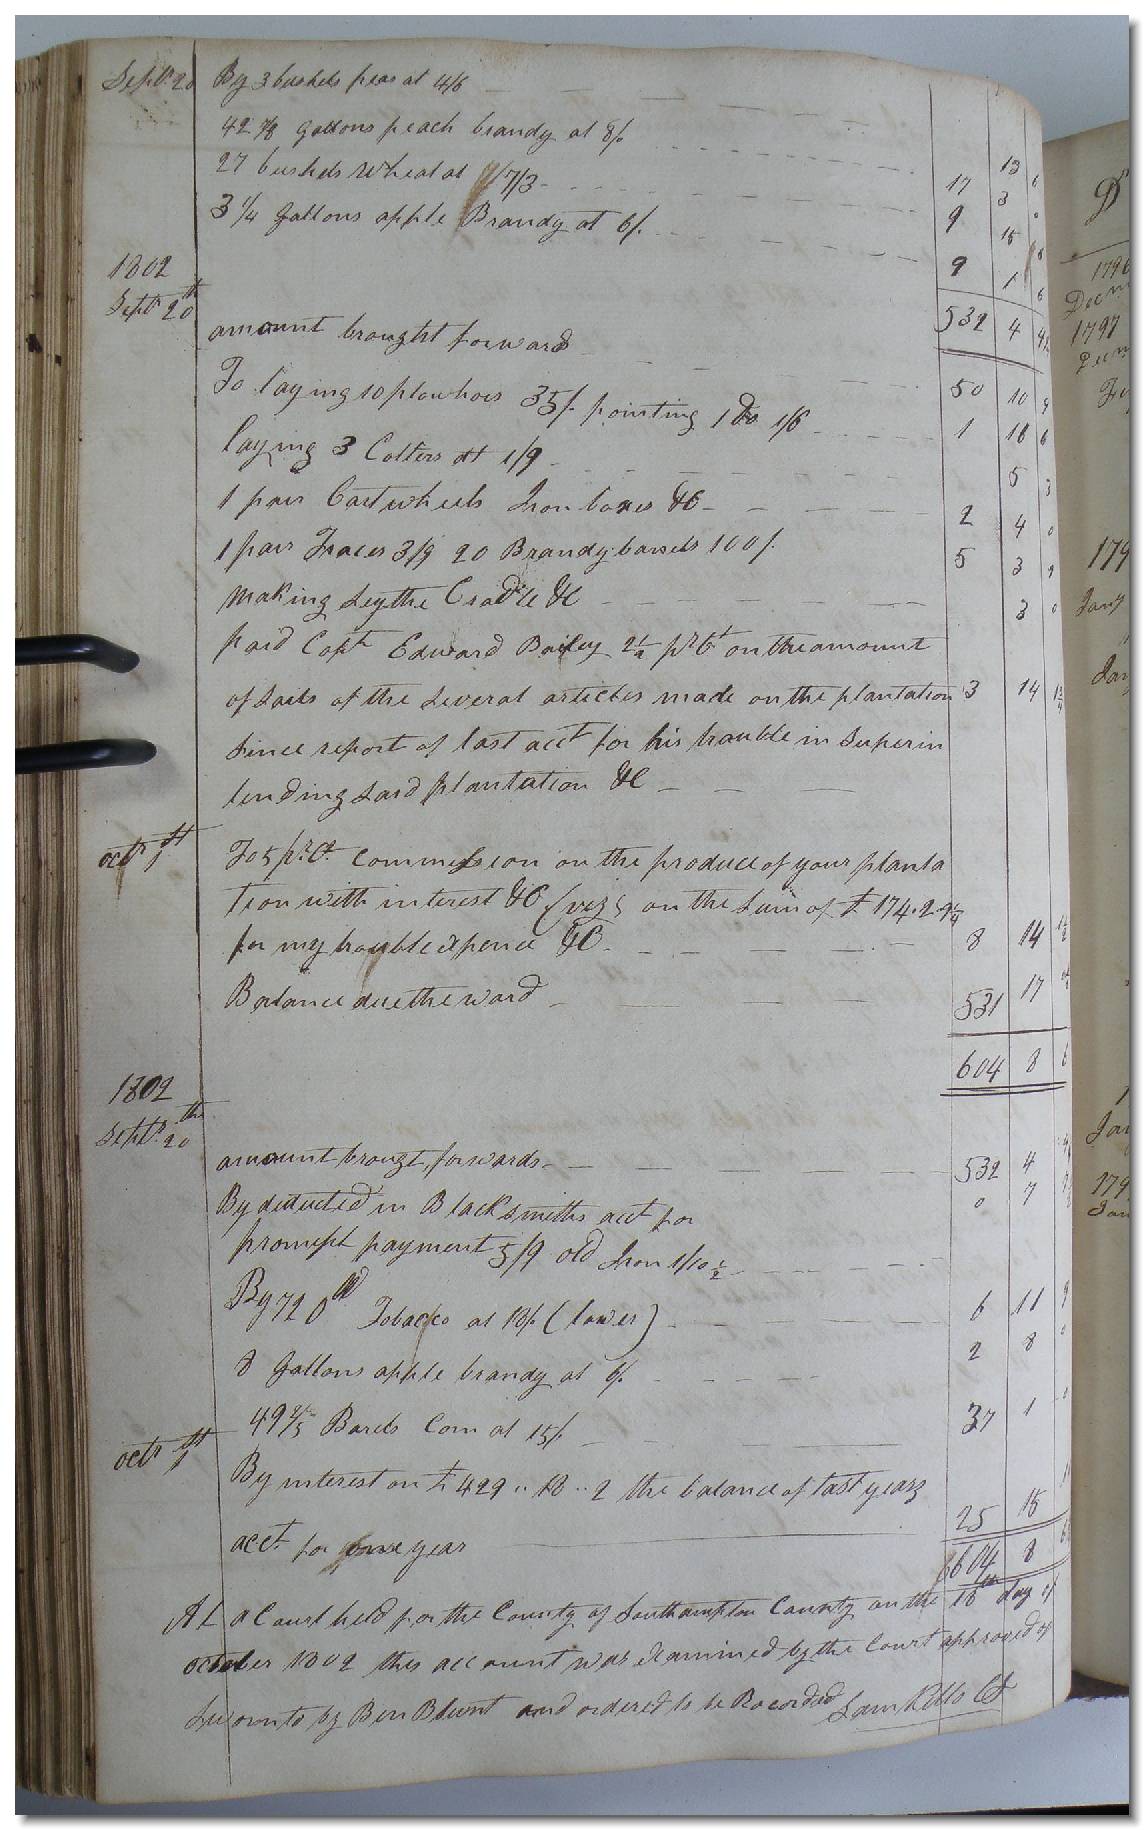 Septr 20 By 3 bushels peas at 4/6 13 6
42 7/8 gallons peach brandy at 8/. 17 3 0
27 bushels wheat at 7/3 9 15
3 1/4 gallons apple Brandy at 6/. 1 6
1802
Septr 20th
532 4
amount brought forward 50 10 9
To laying 10 plowhoes 35/. pointing 1 do 1/6 1 16 6
laying 3 Colters at 1/9 5 3
1 pair Cartwheels Iron boxes &C 2 4 0
1 pair Traces 3/9 20 Brandy barrels 100/. 5 3 9
Making Scythe Cradle &C 3 0
paid Capt. Edward Bailey 2½ pr Ct on the amount
of sails of the several articles made on the plantation 3 14
since report of last acct for his trouble in Superin
tending said plantation &C
octr 1st To 5 pr. Ct. commission on the produce of your planta
tion with interest &C (viz) on the sum of £ 174.2.
for my trouble expence &C 8 14
Balance due the ward 531 17
604 8 6
1802
Septr. 20th
amount brougt forwards 532 4
By deducted in Blacksmiths act for 0 7
prompt payment 5/9 old Iron 1/10½
By 720 lb Tobacco at 18/ (lower) 6 11
8 gallons apple brandy at 6/. 2 8 0
49 2/5 Barels Corn at 15/. 37 1 0
octr 1st By interest on £ 429 .. 18 .. 2 the balance of last years
acct. for one year 25 15
604 8 6
At a Court held for the County of Southampton County on the 18th day of
october 1802 this account was examined by the Court approved of
Sworn to by Ben Blunt and ordered to be Recorded Sam Kello Ct
D
1796
Decm
1797
Decm
179
Jany
Jan
179
Jan